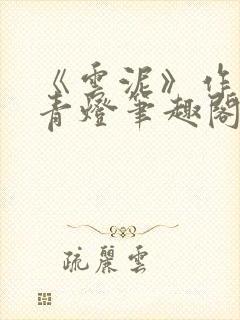 《雲泥》作
青燈筆趣閣
疏麗雲